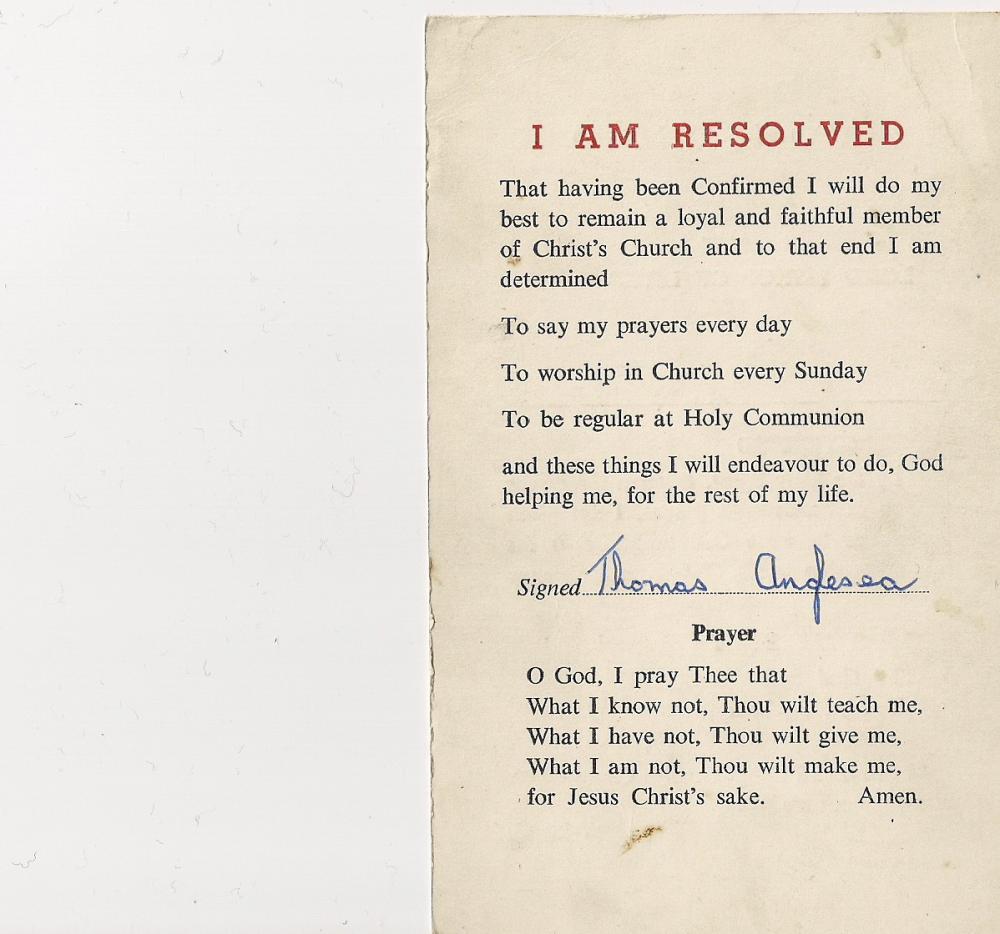 I AM RESOLVED
That having been Confirmed I will do my
best to remain a loyal and faithful member
of Christ's Church and to that end I am
determined
To say my prayers every day
To worship in Church every Sunday
To be regular at Holy Communion
and these things I will endeavour to do, God
helping me, for the rest of my life.
Signed Thomas Anglesea
Prayer
O God, I pray Thee that
What I know not, Thou wilt teach me,
What I have not, Thou wilt give me,
What I am not, Thou wilt make me,
for Jesus Christ's sake. Amen.